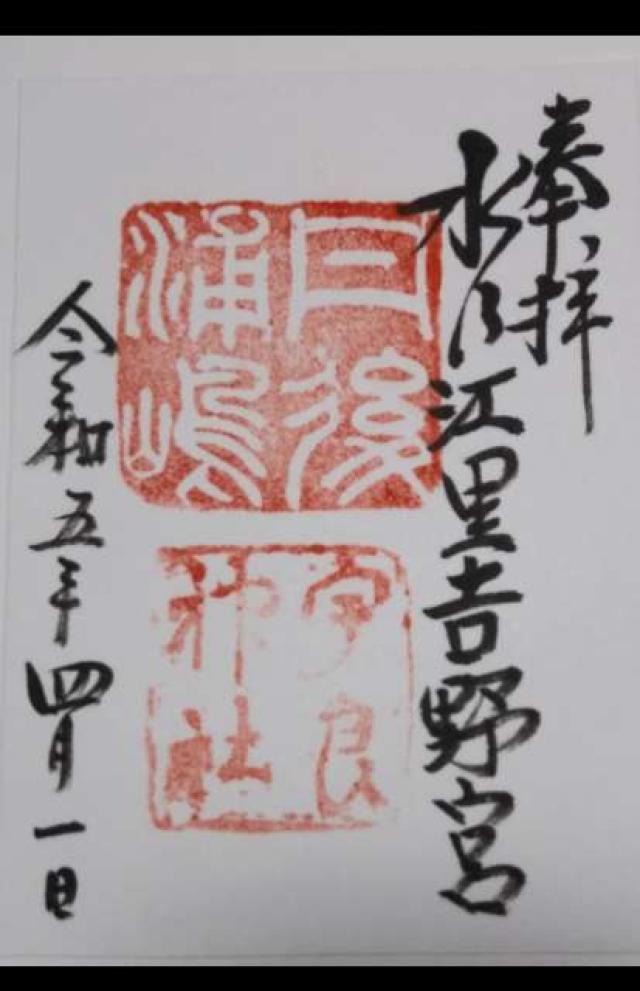 奉拝
水乃江里吉野宮
丹後
浦嶋
宇良
神社
令和五年四月一日